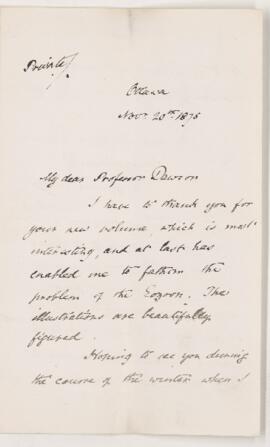 Private/
Ottawa
Novr 20th 1875
My dear Professor Dawson
I have to thank you for
your new volume, which is most
interesting, and at last has
enabled me to fathom the
problem of the Eozoon. The
illustrations are beautifully
figured.
Hoping to see you during
the course of the winter when I